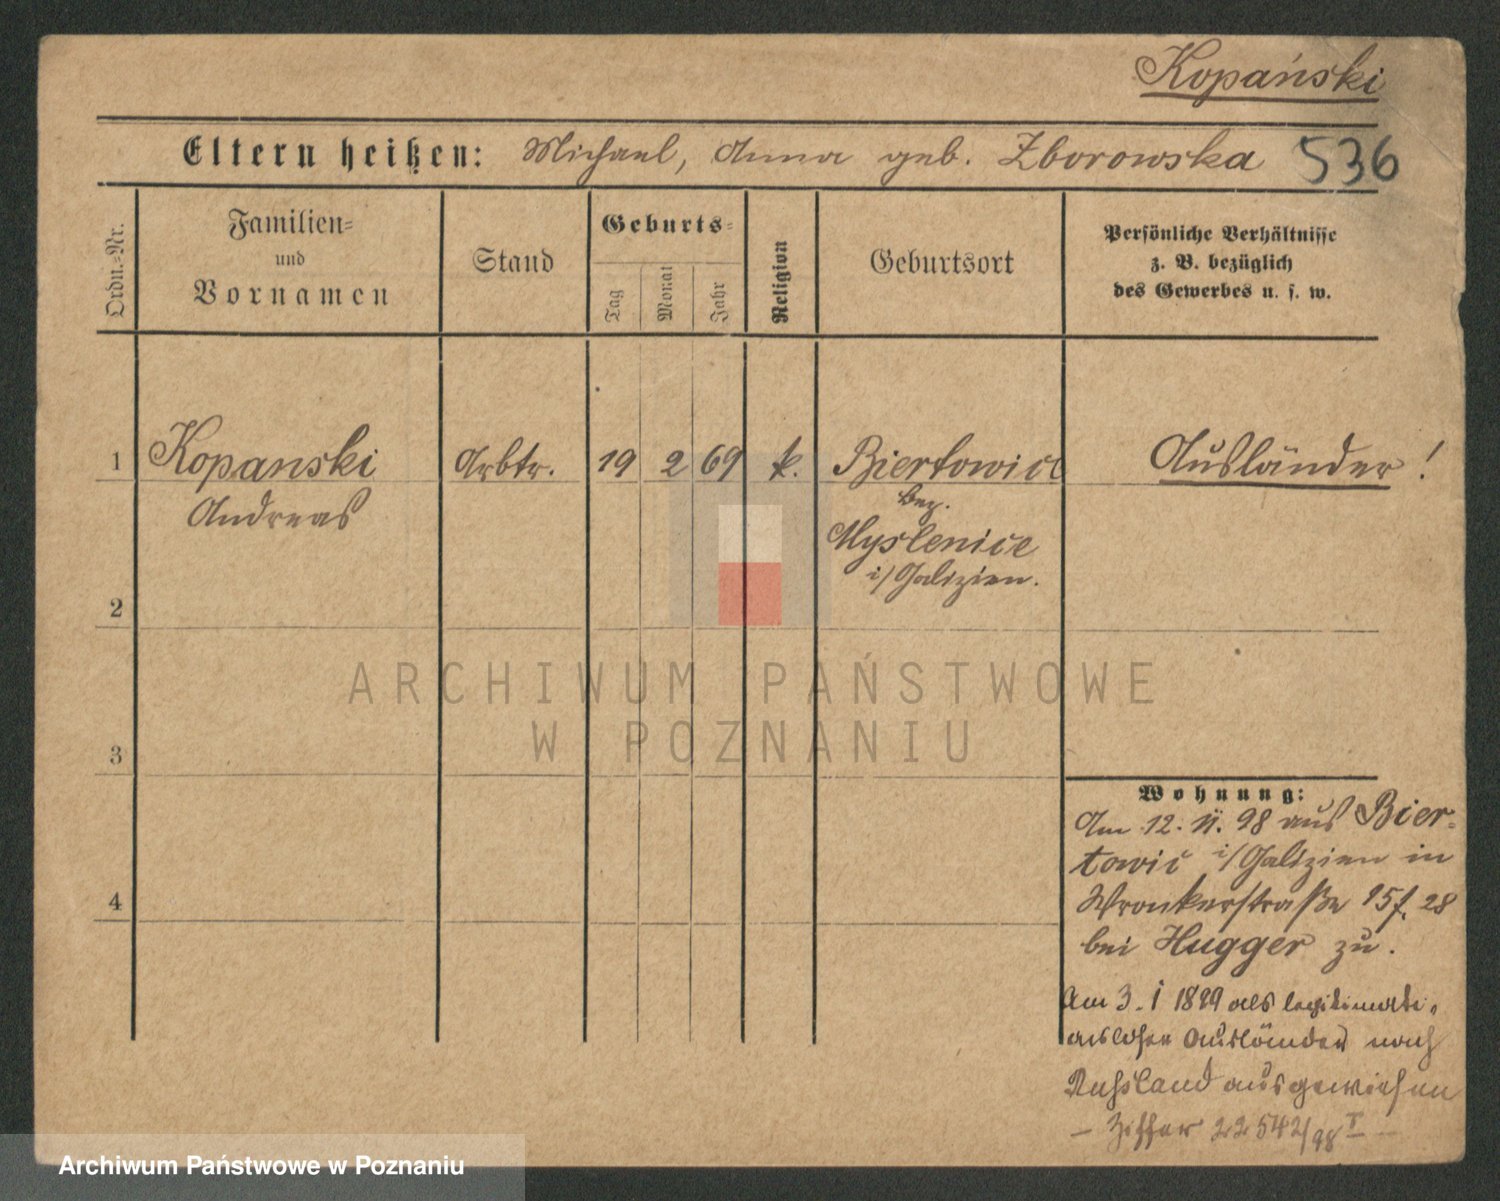 Kopański
Eltern heißen: Michael, Anna geb. Zborowska 536
Ordn.-Nr.
Familien-
und
Vornamen
Stand
Geburts-
Tag
Monat
Jahr
Religion
Geburtsort
Persönliche Verhältnisse
z. B. bezüglich
des Gewerbes u. s. w.
1 Kopanski Arbtr. 19 2 69 k. Biertowice Ausländer!
Andreas
bez.
Myslenice
i/Galizien.
2
3
4
Wohnung:
Am 12. 11. 98 aus Bier-
towic i/Galizien in
Wronkerstraße 15f. 28
bei Hugger zu.
Am 3. I 1899 als legitimati-
onsloser Ausländer nach
Russland ausgewiesen
– Ziffer 22542/98 I –
ARCHIWUM PAŃSTWOWE
W POZNANIU
Archiwum Państwowe w Poznaniu